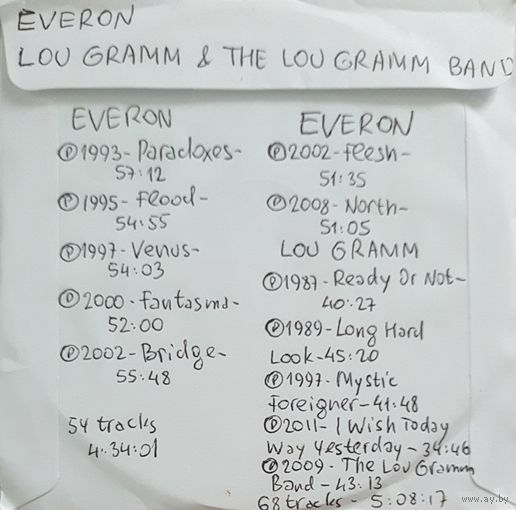 EVERON
LOU GRAMM & THE LOU GRAMM BAND
EVERON
℗1993-Paradoxes-
57:12
℗1995-Flood-
54:55
℗1997-Venus-
54:03
℗2000-Fantasma-
52:00
℗2002-Bridge-
55:48
54 tracks
4:34:01
EVERON
℗2002-Flesh-
51:35
℗2008-North-
51:05
LOU GRAMM
℗1987-Ready Or Not-
40:27
℗1989-Long Hard
Look-45:20
℗1997-Mystic
Foreigner-41:48
℗2011-I Wish Today
Way Yesterday-34:46
℗2009-The Lou Gramm
Band-43:13
68 tracks-5:08:17
www.ay.by